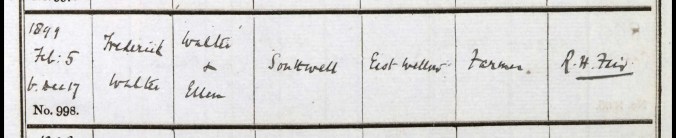 1899
Feb: 5
b. Dec 17
No. 998.
Frederick
Walter
Walter
&
Ellen
Southwell
East Wellow
Farmer.
R. H. Fair